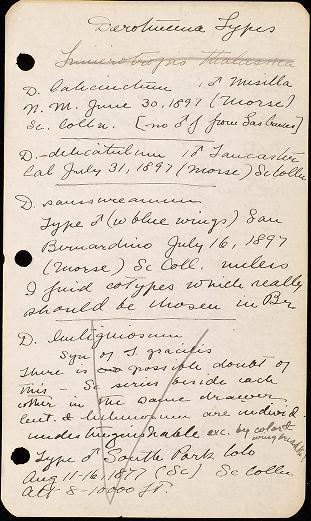 Derotmema Types
Trimerotropis thalassica
D. laticinctum 1♂ Mesilla
N. M. June 30, 1897 (Morse)
Sc. Colln. [-no ♂ f from Las Cruces]
D. delicatulum 1♂ Lancaster
Cal July 31, 1897 (Morse) Sc Colln
D. saussureanum
Type ♂ (w blue wings) San
Bernardino July 16, 1897
(Morse) Sc Coll. unless
I find cotypes which really
should be chosen in Br
D. lentiginosum
Syn of T. gracilis
There is no possible doubt of
this - Sc series beside each
other in the same drawer
lent. & are individ
undistinguishable exc. by color &
wing
Type ♂ South Park Colo
Aug 11-16, 1877 (Sc) Sc Colln
Alt 8-10000 ft.